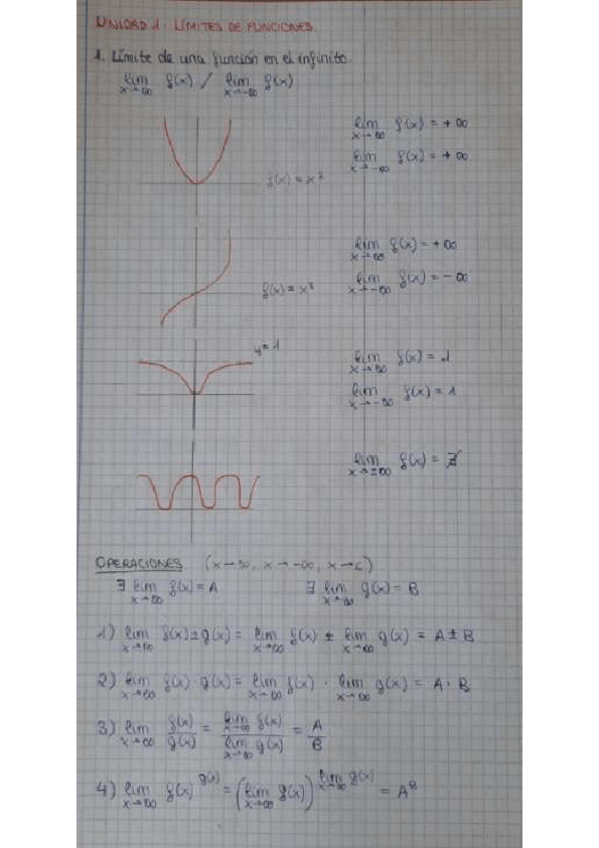 UNIDAD 1. LÍMITES DE FUNCIONES.
1. Límite de una función en el infinito.
lim x→∞ f(x) / lim x→-∞ f(x)
lim x→∞ f(x) = +∞
lim x→-∞ f(x) = +∞
f(x) = x²
lim x→∞ f(x) = +∞
lim x→-∞ f(x) = -∞
f(x) = x³
y = 1
lim x→∞ f(x) = 1
lim x→-∞ f(x) = 1
lim x→±∞ f(x) = ∄
OPERACIONES (x→∞, x→-∞, x→c)
∃ lim x→∞ f(x) = A ∃ lim x→∞ g(x) = B
1) lim x→∞ f(x) ± g(x) = lim x→∞ f(x) ± lim x→∞ g(x) = A ± B
2) lim x→∞ f(x) · g(x) = lim x→∞ f(x) · lim x→∞ g(x) = A · B
3) lim x→∞ f(x)/g(x) = lim x→∞ f(x) / lim x→∞ g(x) = A/B
4) lim x→∞ f(x)^g(x) = (lim x→∞ f(x))^lim x→∞ g(x) = A^B